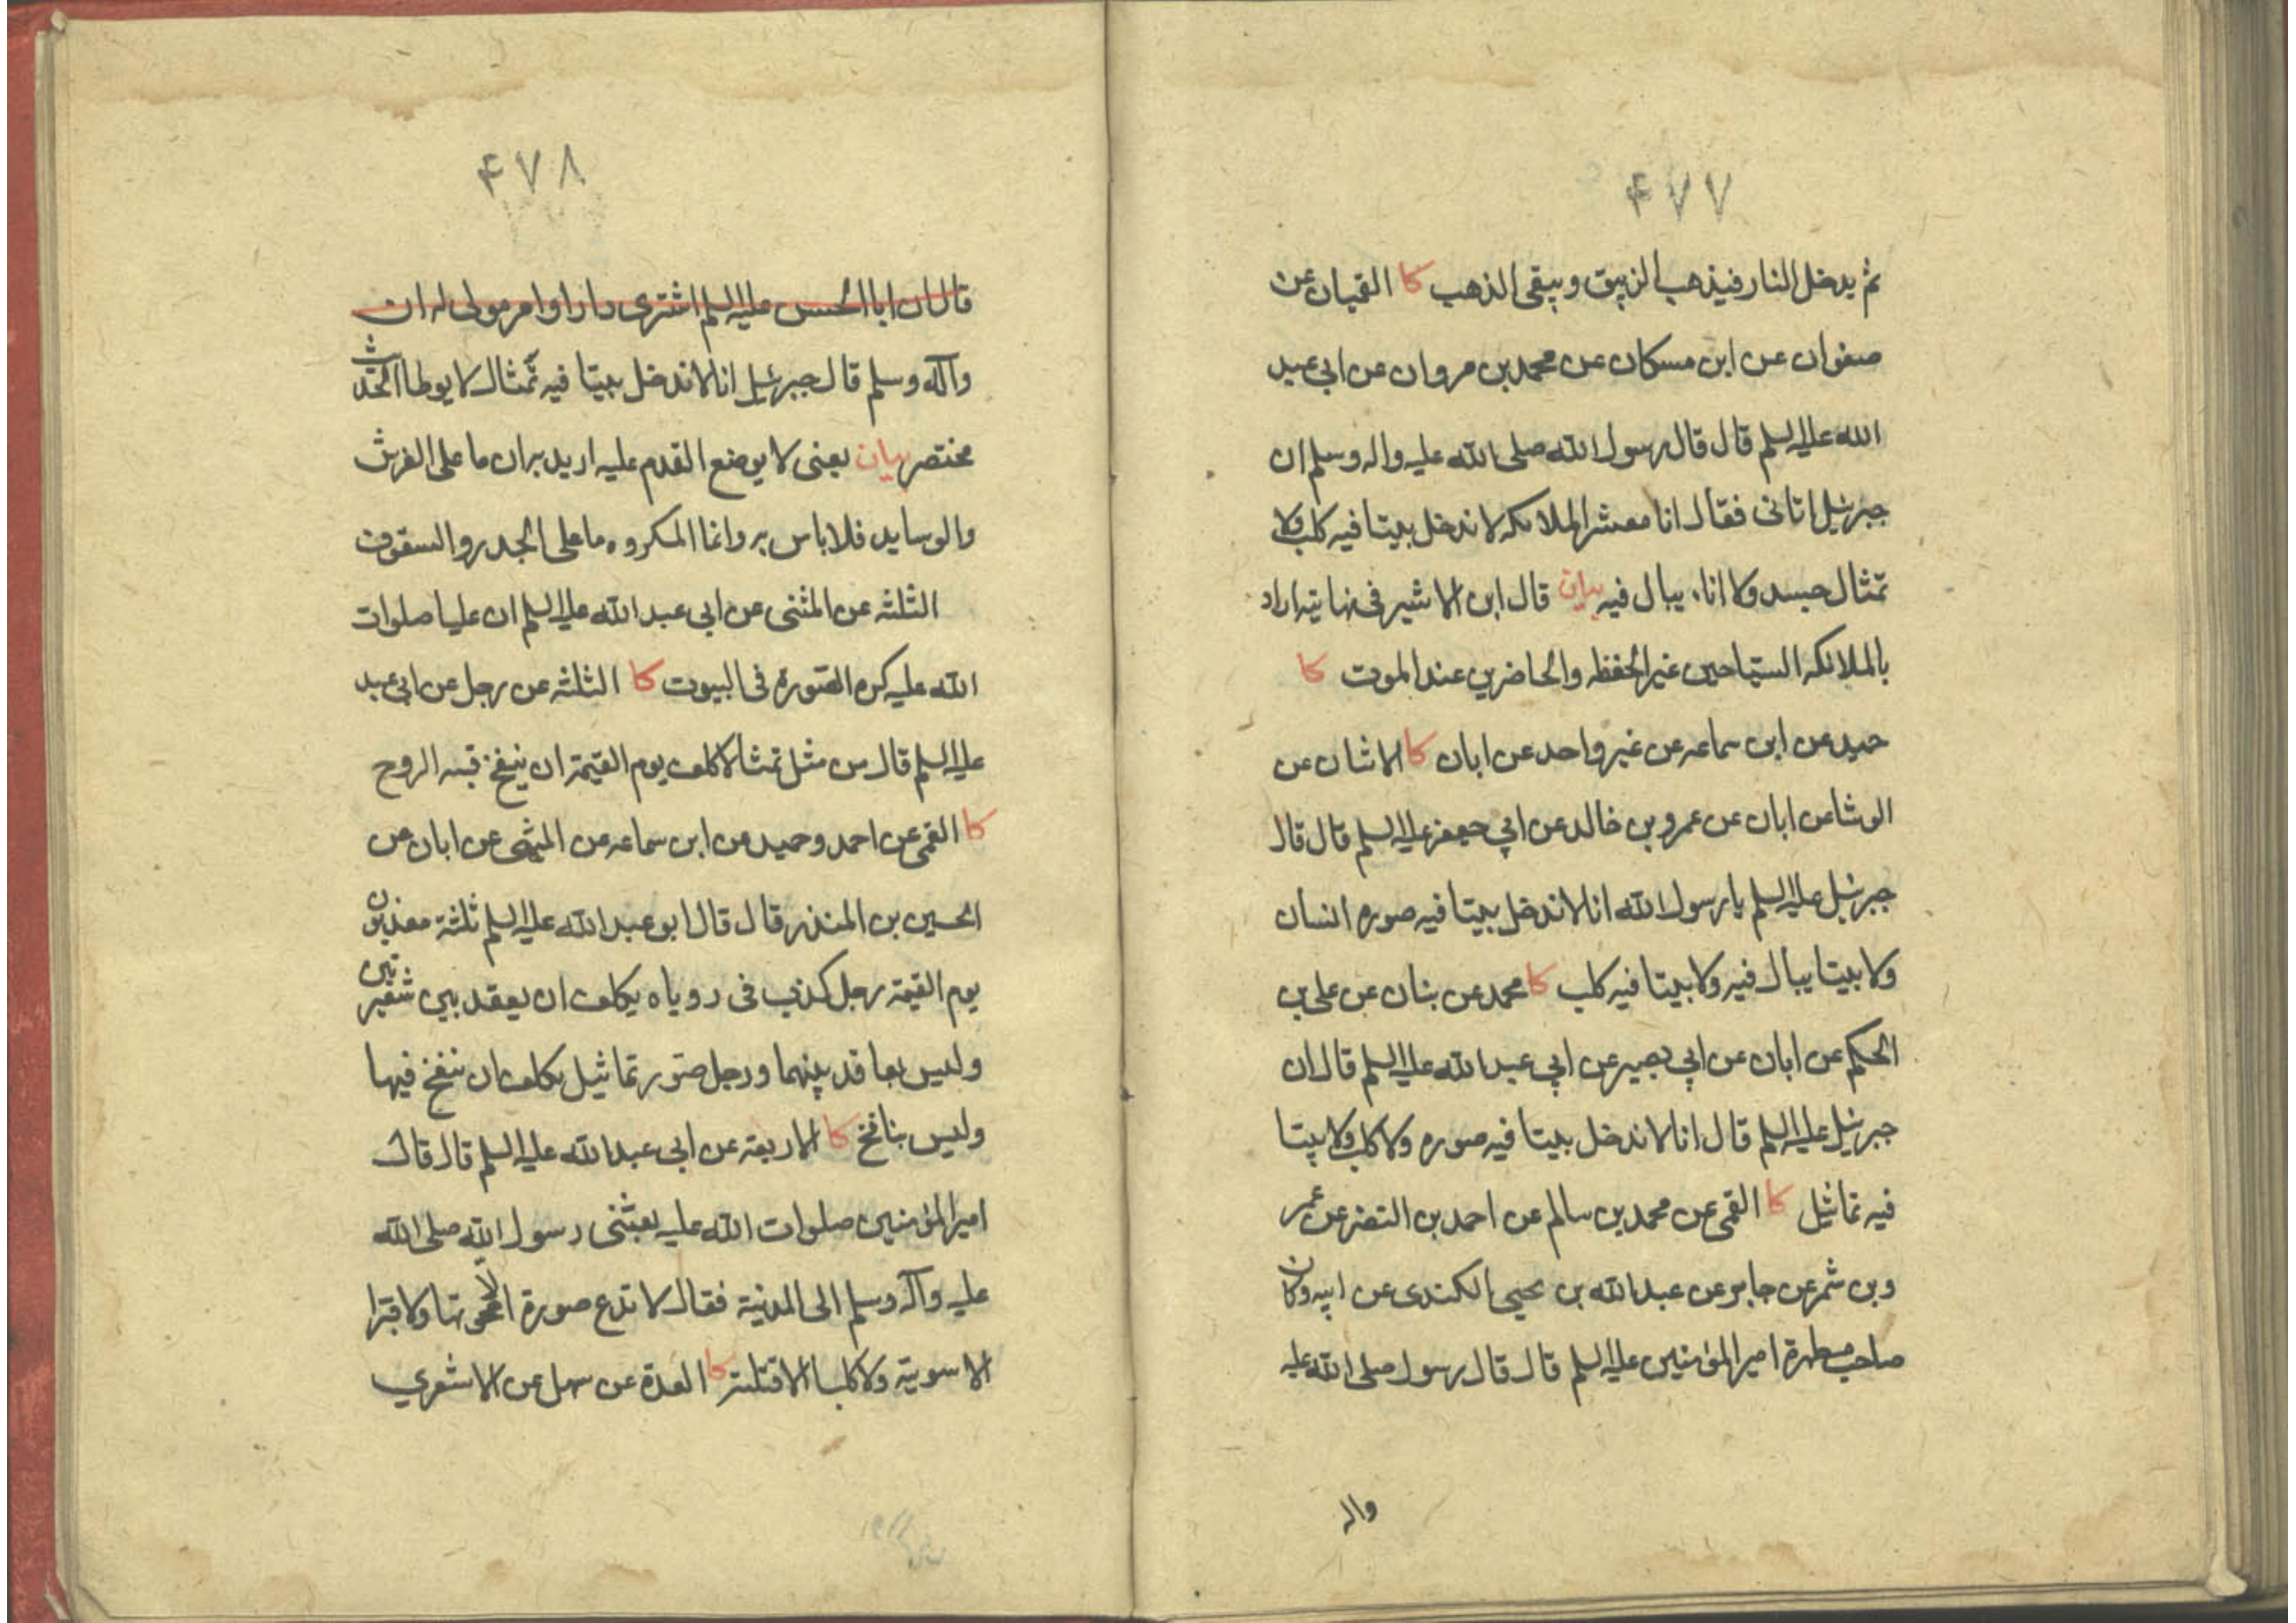 ۴۷۷
ثم يدخل النار فيذهب الزيبق ويبقى الذهب كا القميان عن
صفوان عن ابن مسكان عن محمد بن مروان عن ابي عبد
الله عليه السلم قال قال رسول الله صلى الله عليه واله وسلم ان
جبرئيل اتاني فقال انا معشر الملائكه لا ندخل بيتا فيه كلب ولا
تمثال جسد ولا اناء يبال فيه بيان قال ابن الاثير في نهايته اراد
بالملائكه السياحين غير الحفظه والحاضرين عند الموت كا
حميد عن ابن سماعه عن غير واحد عن ابان كا الاثنان عن
الوشا عن ابان عن عمرو بن خالد عن ابي جعفر عليه السلم قال قال
جبرئيل عليه السلم يا رسول الله انا لا ندخل بيتا فيه صوره انسان
ولا بيتا يبال فيه ولا بيتا فيه كلب كا محمد عن بنان عن علي بن
الحكم عن ابان عن ابي بصير عن ابي عبد الله عليه السلم قال ان
جبرئيل عليه السلم قال انا لا ندخل بيتا فيه صوره ولا كلب ولا بيتا
فيه تماثيل كا القمي عن محمد بن سالم عن احمد بن النضر عن عمر
وبن شمر عن جابر عن عبد الله بن يحيى الكندي عن ابيه وكان
صاحب مطهرة امير المؤمنين عليه السلم قال قال رسول صلى الله عليه
واله
۴۷۸
قال ان ابا الحسن عليه السلم اشترى دارا وامر مولى له ان
وآله وسلم قال جبرئيل انا لا ندخل بيتا فيه تمثال لا يوطا الحديث
مختصر بيان يعني لا يوضع القدم عليه اريد به ان ما على الفرش
والوسايد فلا باس به وانما المكروه ما على الجدر والسقوف
الثلثه عن المثنى عن ابي عبد الله عليه السلم ان عليا صلوات
الله عليه كره الصورة في البيوت كا الثلثه عن رجل عن ابي عبد
عليه السلم قال من مثل تمثالا كلف يوم القيمة ان ينفخ فيه الروح
كا القمي عن احمد وحميد عن ابن سماعه عن الميثمي عن ابان عن
الحسين بن المنذر قال قال ابو عبد الله عليه السلم ثلثة معذبون
يوم القيمة رجل كذب في روياه يكلف ان يعقد بين شعيرتين
وليس بعاقد بينهما ورجل صور تماثيل يكلف ان ينفخ فيها
وليس بنافخ كا الاربعة عن ابي عبد الله عليه السلم قال قال
امير المؤمنين صلوات الله عليه بعثني رسول الله صلى الله
عليه وآله وسلم الى المدينة فقال لا تدع صورة الا محوتها ولا قبرا
الا سويته ولا كلبا الا قتلته كا العدة عن سهل عن الاشعري